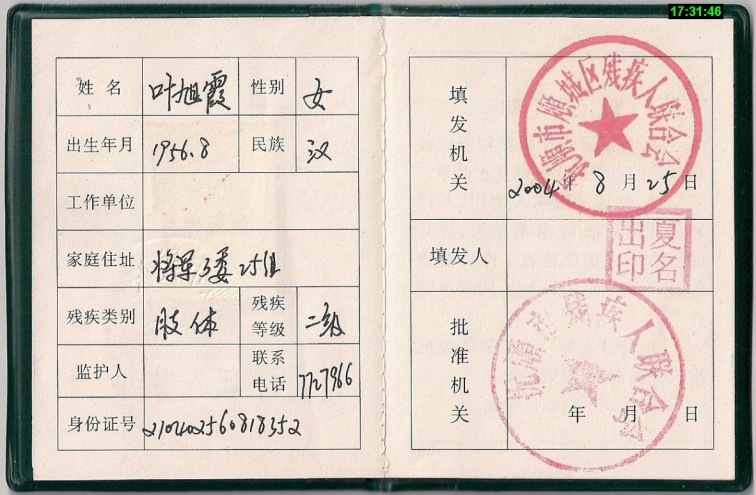 17:31:46
姓名 叶旭霞 性别 女
出生年月 1956.8 民族 汉
工作单位
家庭住址 将军3委25组
残疾类别 肢体 残疾等级 二级
监护人 联系电话 7727966
身份证号 210402560818352
填发机关 抚顺市顺城区残疾人联合会
2004年8月25日
填发人 夏名出印
批准机关 抚顺市残疾人联合会
年 月 日